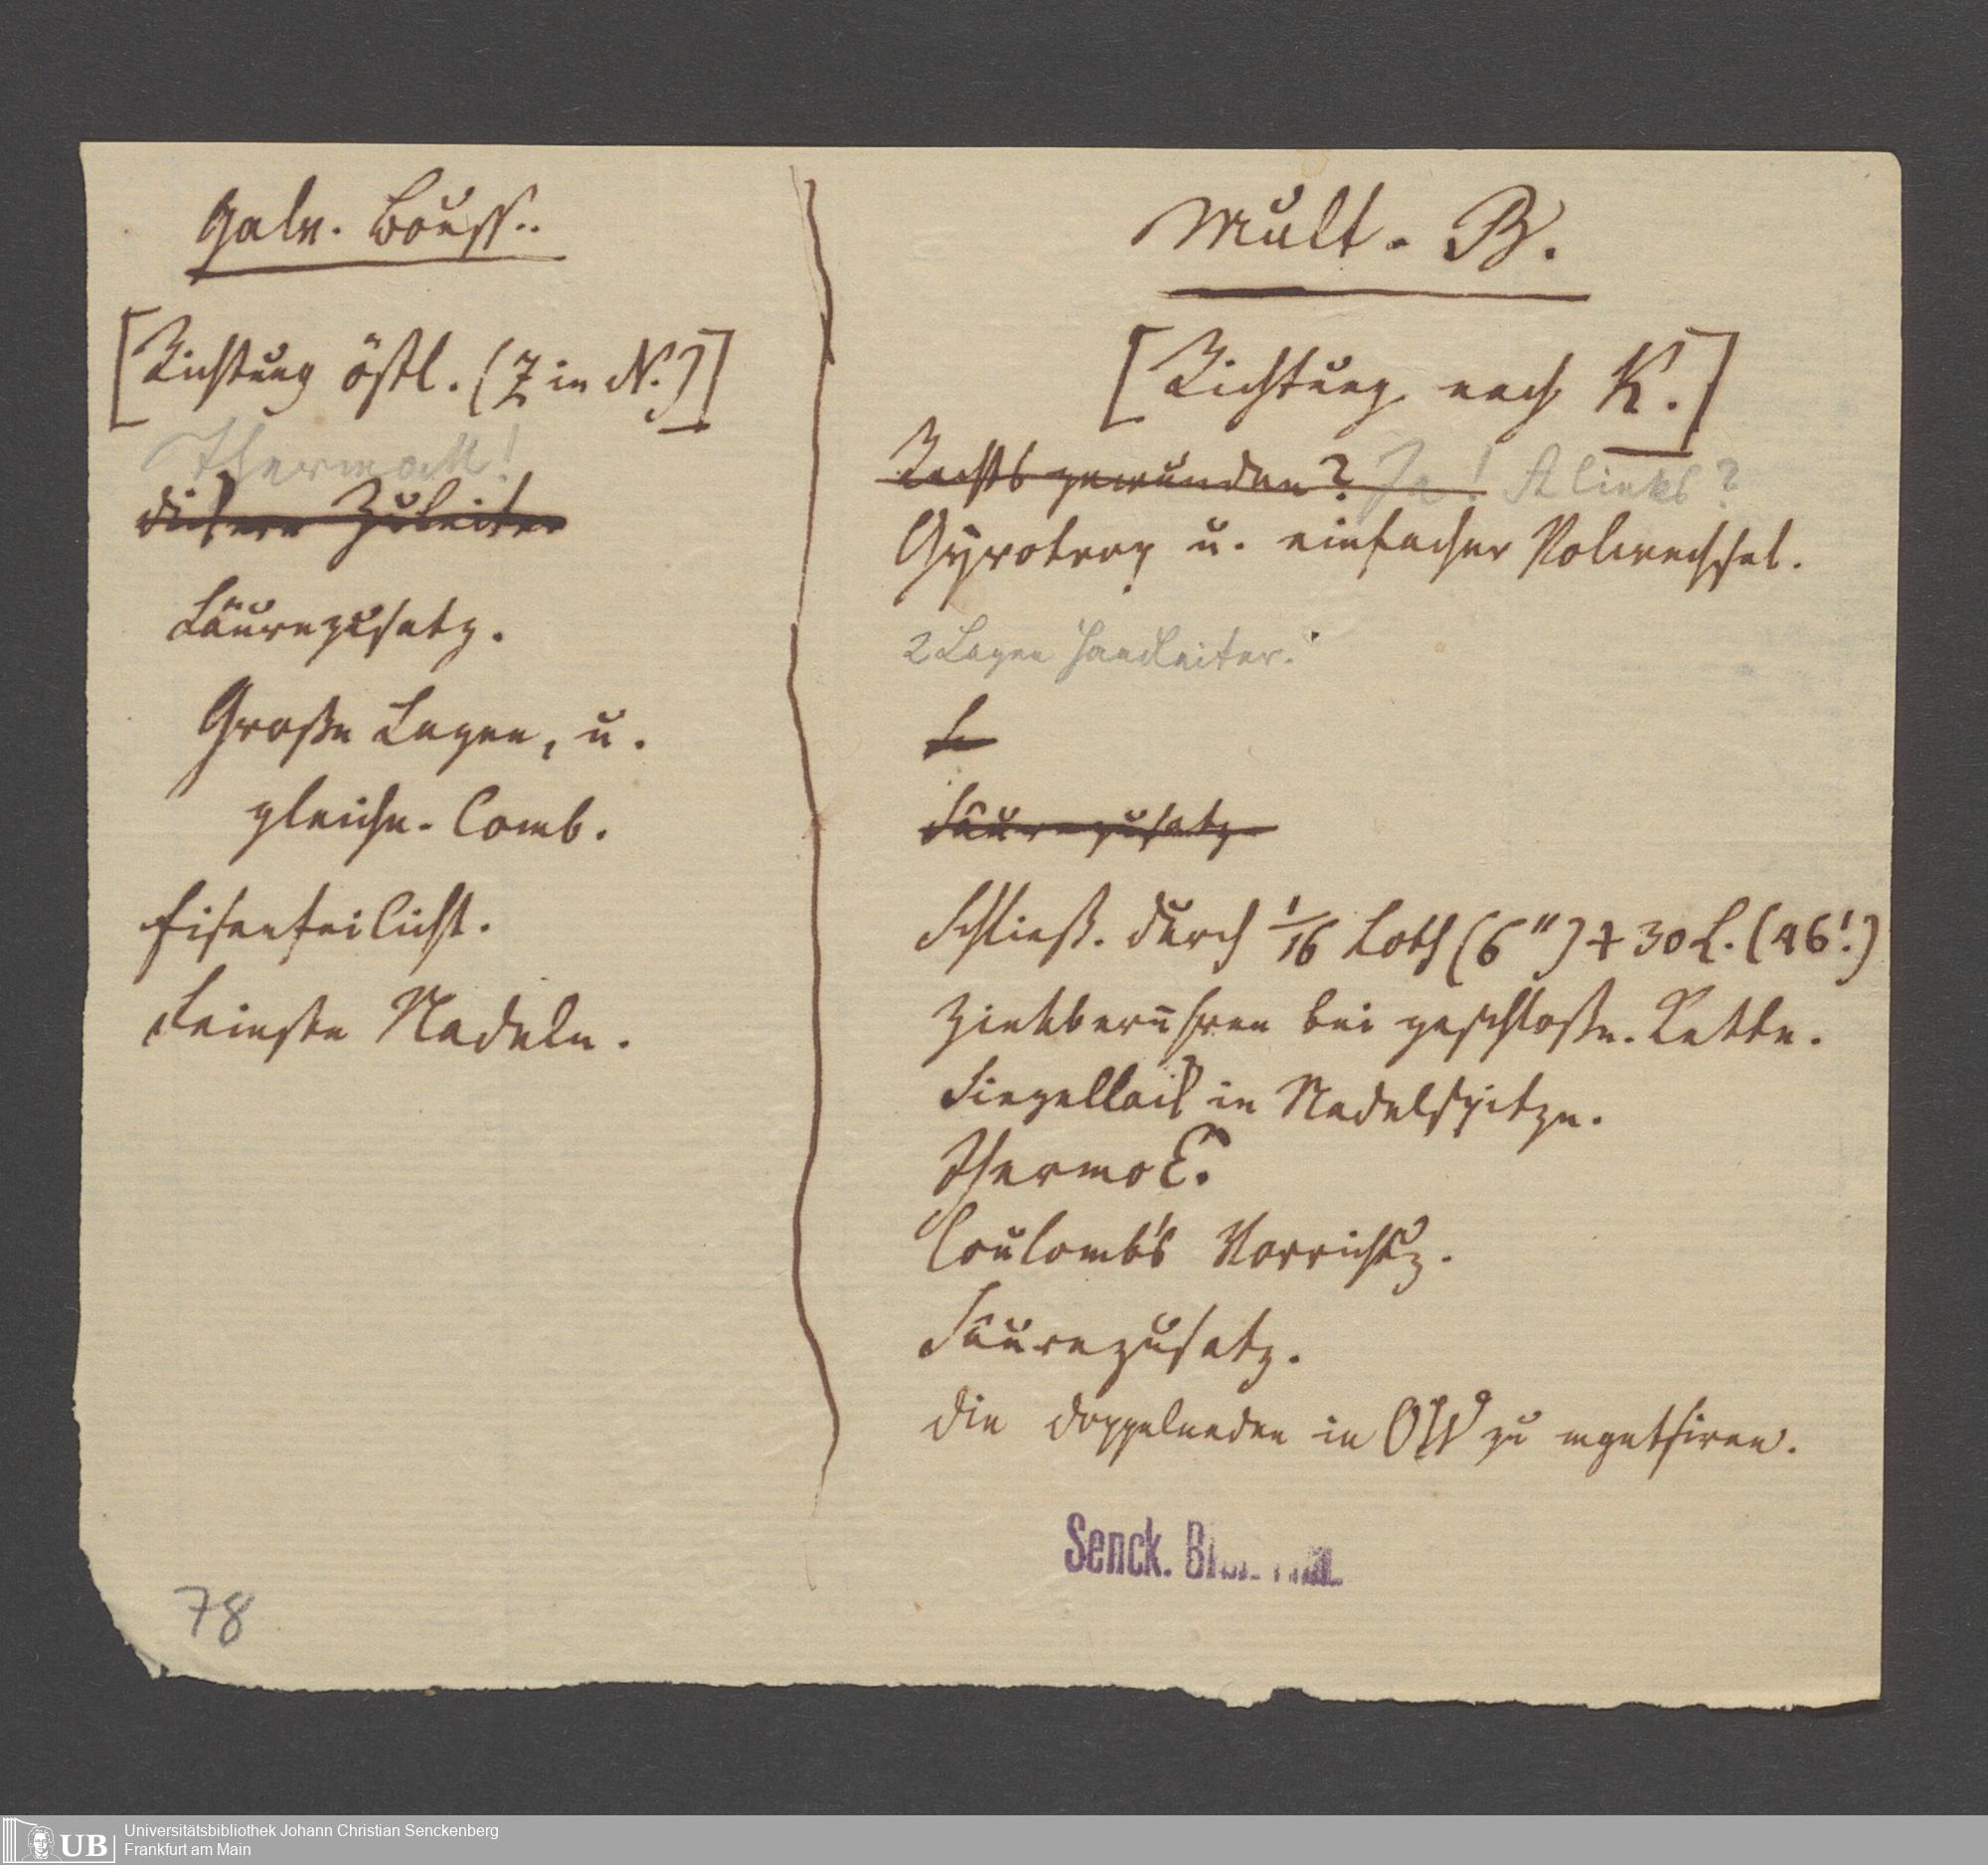 Galv. Bouss..
[Richtung östl. (Z in N.)]
Thermo M!
dickere Zuleiter
Säurezusatz.
Große Lagen, u.
gleiche. Comb.
Eisenfeilicht.
Feinste Nadeln.
Mult. B.
[Richtung nach K.]
Rechts gewunden? Ja! A links?
Gyrotrop u. einfacher Polwechsel.
2 Lagen Handleiter.
S
Säurezusatz
Schließ. durch 1/16 Loth (6") + 30 L. (46'.)
Zinkberühren bei geschloße. Kette.
Siegellack in Nadelspitze.
Thermo E.
Coulomb's Vorrichtg.
Säurezusatz.
Die Doppelnadeln in zu mgnetsiren.
Senck.
78
UB Universitätsbibliothek Johann Christian Senckenberg
Frankfurt am Main